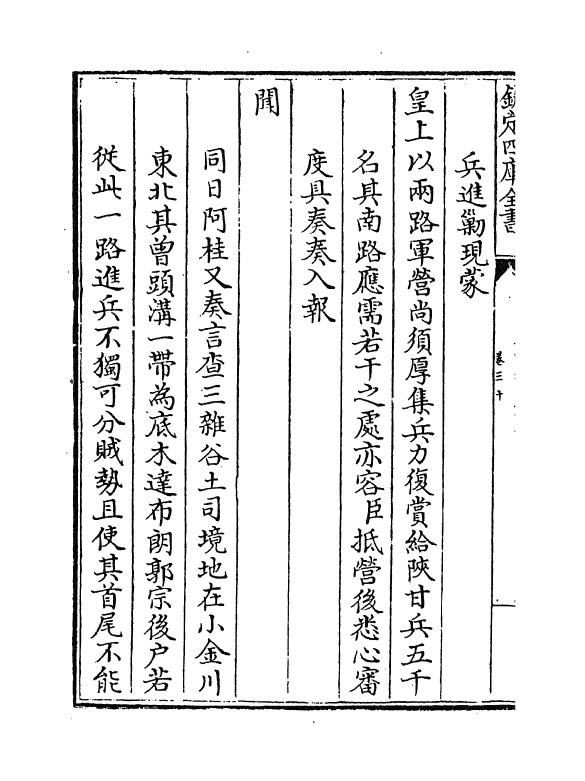 欽定四庫全書
卷三十
兵進勦現蒙
皇上以兩路軍營尚須厚集兵力復賞給陜甘兵五千
名其南路應需若干之處亦容臣抵營後悉心審
度具奏奏入報
聞
同日阿桂又奏言查三雜谷土司境地在小金川
東北其曾頭溝一帶為底木達布朗郭宗後户若
從此一路進兵不獨可分賊勢且使其首尾不能